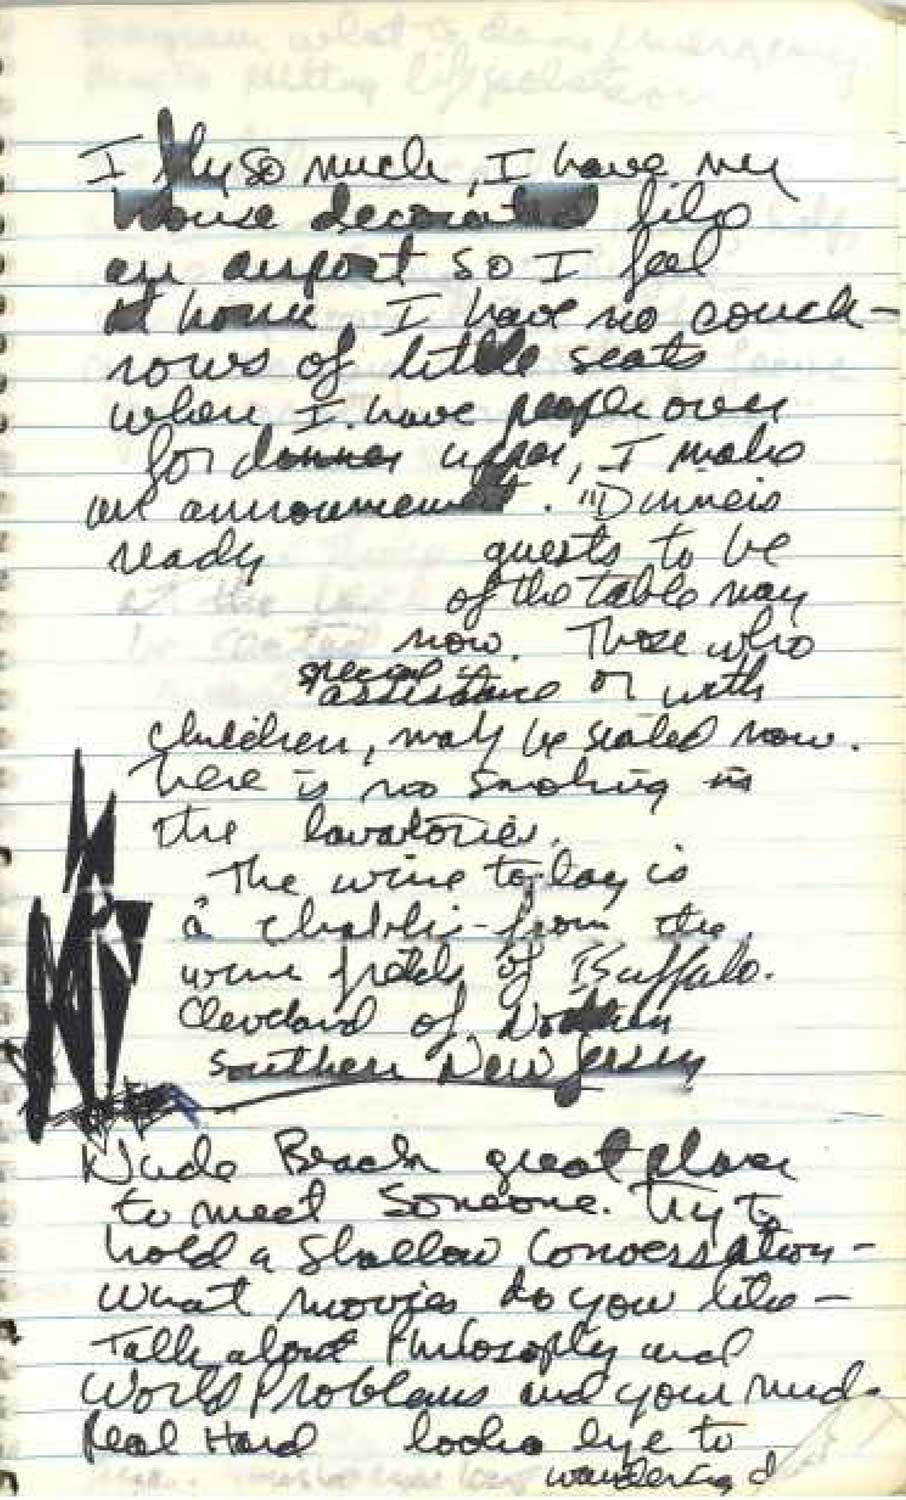 I fly so much, I have my
house decorated like
an airport so I feel
at home, I have no couch –
rows of little seats
when I have people over
for dinner, I make
an announcement. "Dinner is
ready guests to be
of the table may
now. Those who
special
assistance or with
children, may be seated now.
here is no smoking in
the lavatories.
The wine today is
a chablis - from the
wine fields of Buffalo.
Cleveland of Northern
Southern New Jersey
Nude Beach great place
to meet someone. Try to
hold a shallow conversation –
what movies do you like –
Talk about Philosophy and
World Problems and your nude.
Real Hard look eye to
wandering